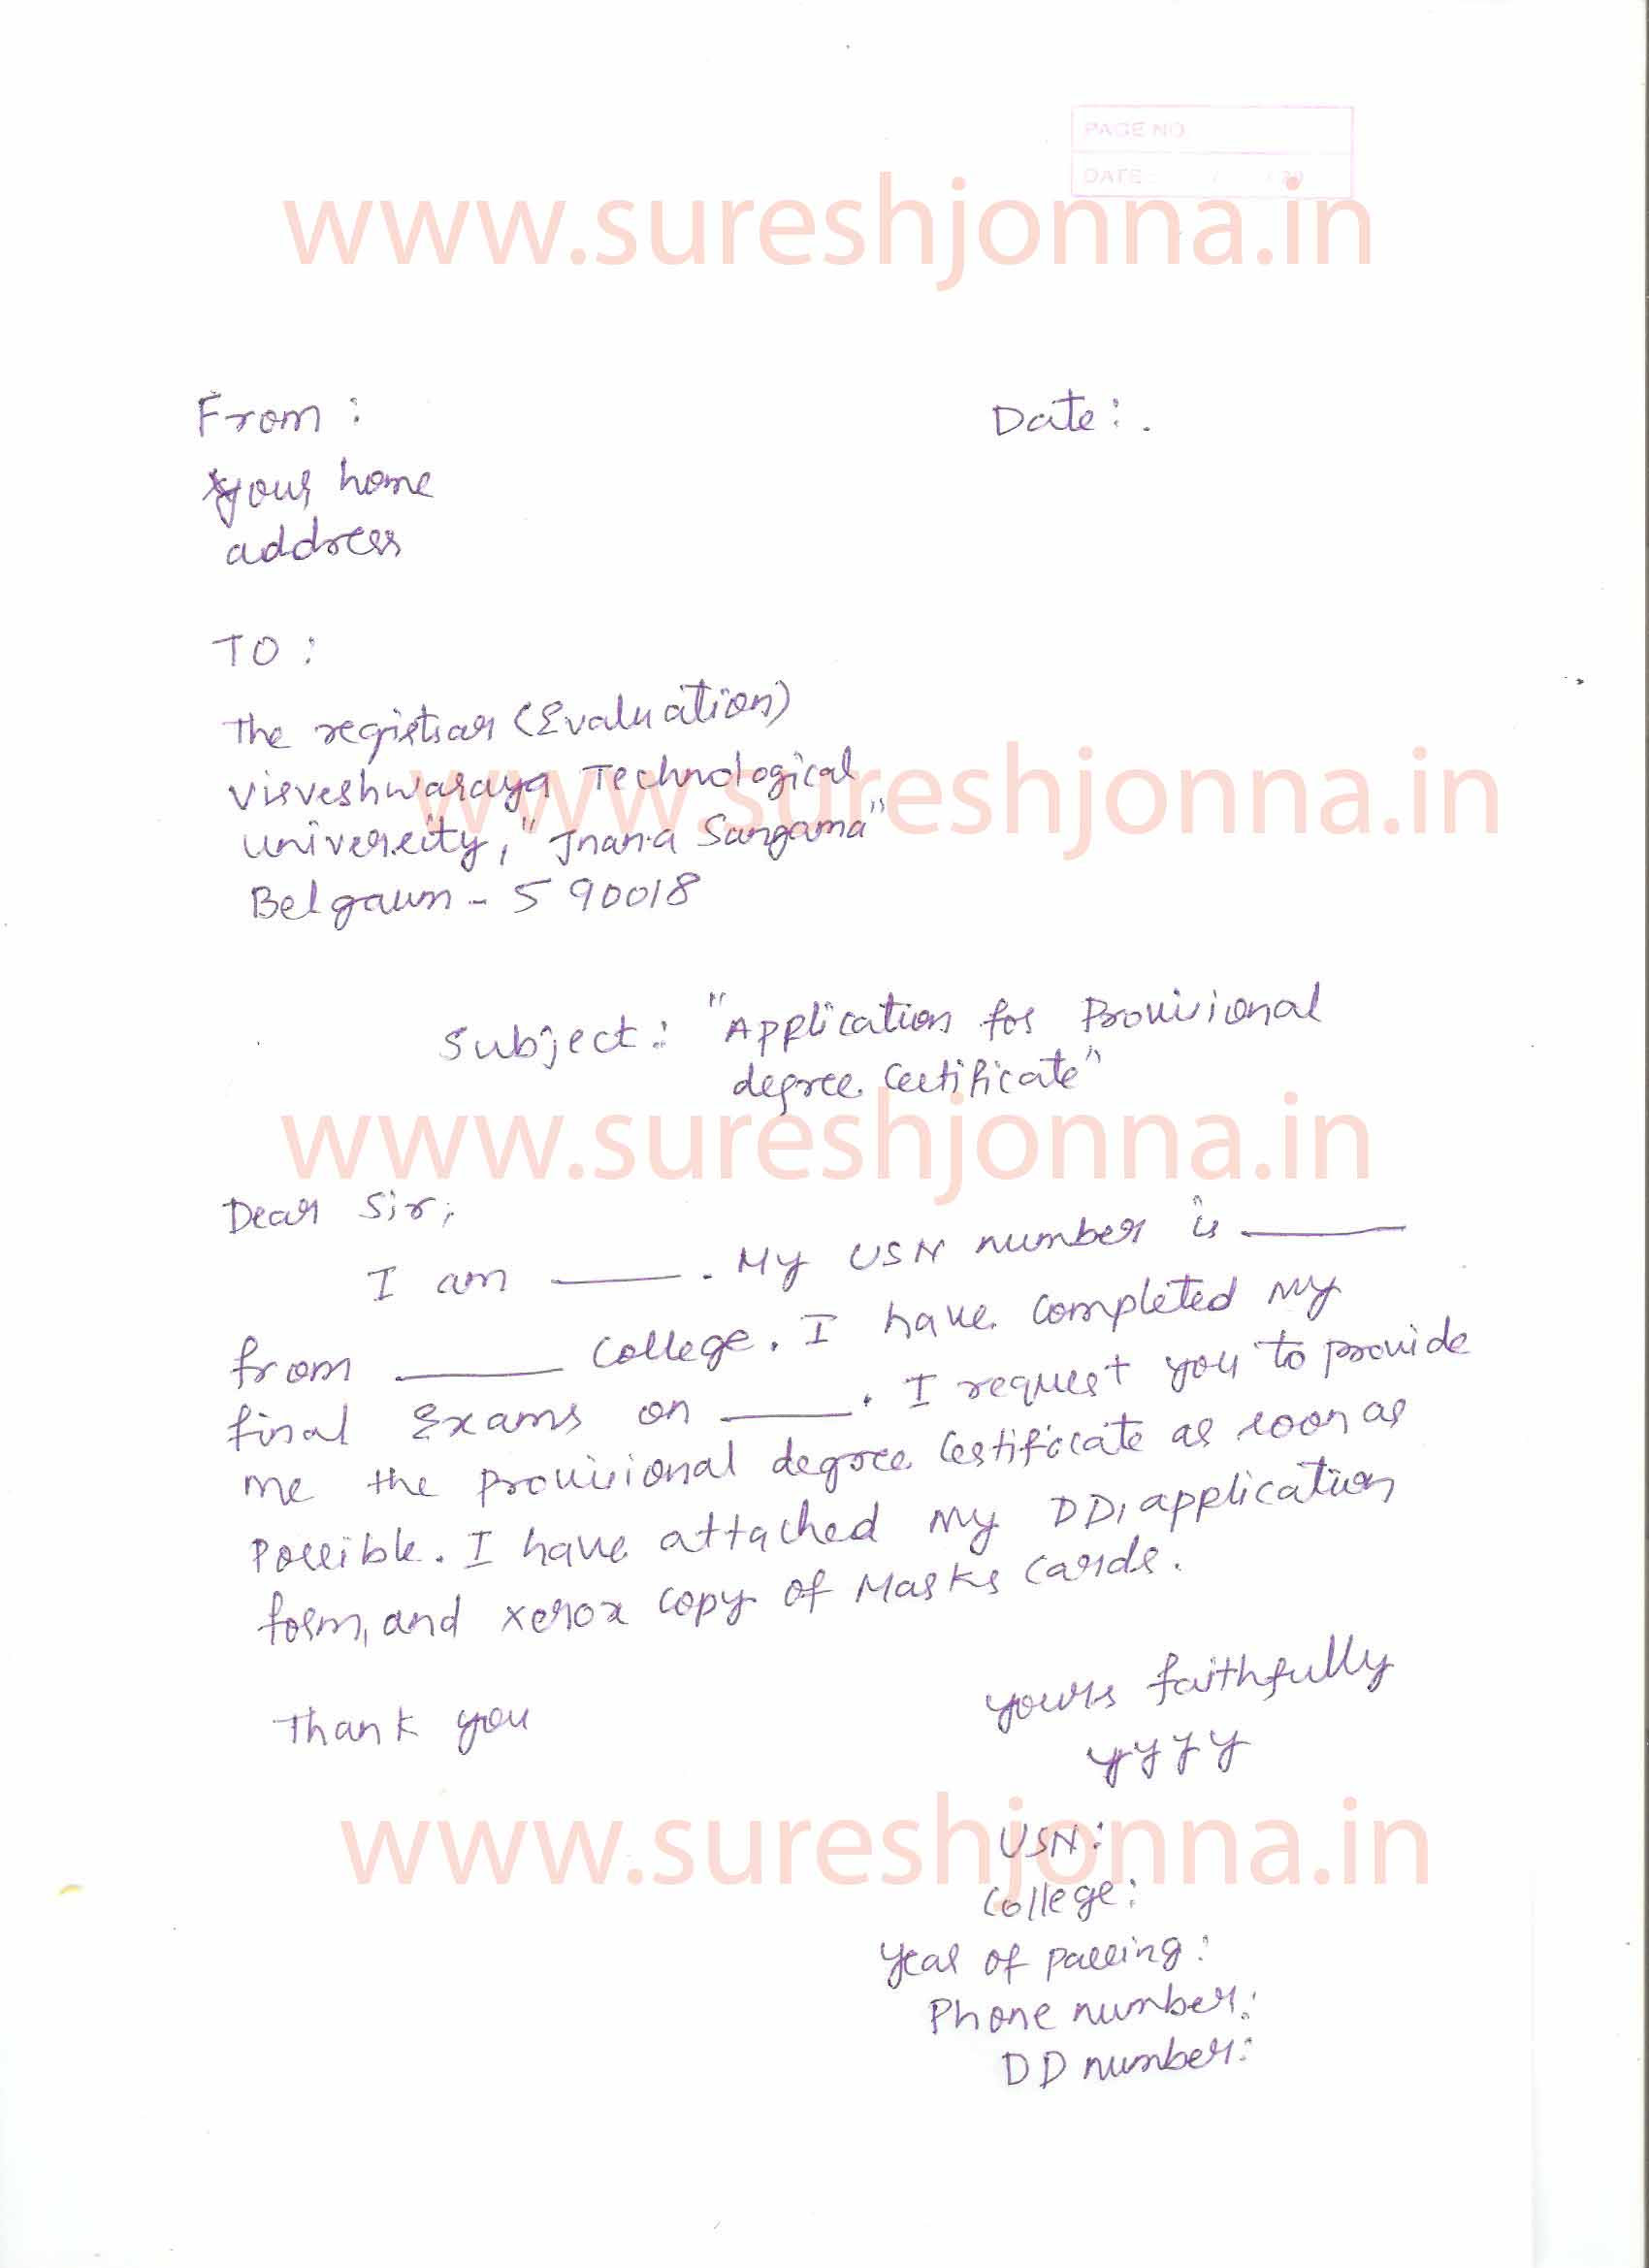 PAGE NO
DATE: / / 20
www.sureshjonna.in
From : Date: .
your home
address
TO :
The registrar (Evaluation)
Visveshwaraya Technological
www.sureshjonna.in
University, "Jnana Sangama"
Belgaum - 590018
Subject: "Application for Provisional
degree Certificate"
www.sureshjonna.in
Dear Sir,
I am ____. My USN number is ____
from ____ college. I have completed my
final Exams on ____. I request you to provide
me the provisional degree certificate as soon as
possible. I have attached my DD, application
form, and xerox copy of Marks cards.
Thank you yours faithfully
yyyy
www.sureshjonna.in
USN:
College:
Year of passing:
Phone number:
DD number: